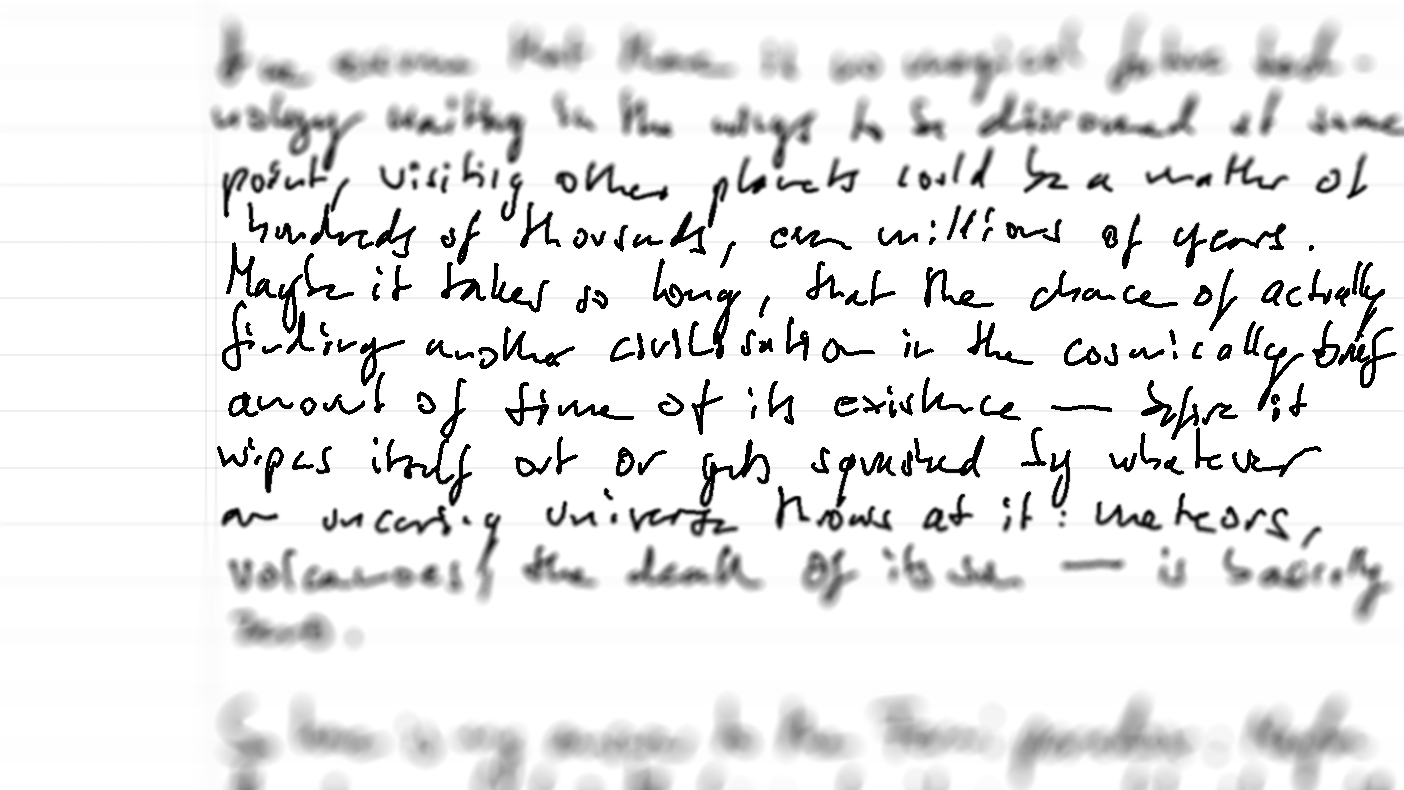 If we assume that there is no magical future tech-
nology waiting in the wings to be discovered at some
point, visiting other planets could be a matter of
hundreds of thousands, even millions of years.
Maybe it takes so long, that the chance of actually
finding another civilisation in the cosmically brief
amount of time of its existence — before it
wipes itself out or gets squashed by whatever
an uncaring universe throws at it: meteors,
volcanoes, the death of its sun — is basically
zero.
So here is my answer to the Fermi paradox. Maybe